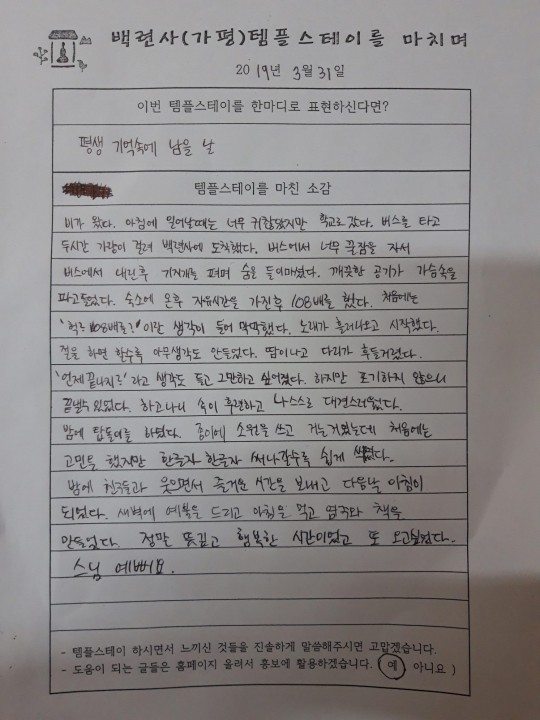 백련사(가평)템플스테이를 마치며
2019년 3월 31일
이번 템플스테이를 한마디로 표현하신다면?
평생 기억속에 남을 날
템플스테이를 마친 소감
비가 왔다. 아침에 일어날때는 너무 귀찮았지만 학교로 갔다. 버스를 타고
두시간 가량이 걸려 백련사에 도착했다. 버스에서 너무 꿀잠을 자서
버스에서 내린후 기지개를 펴며 숨을 들이마셨다. 깨끗한 공기가 가슴속을
파고들었다. 숙소에 온후 자유시간을 가진후 108배를 했다. 처음에는
'헉? 108배를?' 이란 생각이 들어 막막했다. 노래가 흘러나오고 시작했다.
절을 하면 할수록 아무생각도 안들었다. 땀이나고 다리가 후들거렸다.
'언제끝나지?' 라고 생각도 들고 그만하고 싶어졌다. 하지만 포기하지 않으니
끝낼수 있었다. 하고나니 속이 후련하고 나스스로 대견스러웠다.
밤에 탑돌이를 하였다. 종이에 소원을 쓰고 거는거였는데 처음에는
고민을 했지만 한글자 한글자 써나갈수록 쉽게 써졌다.
밤에 친구들과 웃으면서 즐거운 시간을 보내고 다음날 아침이
되었다. 새벽에 예불을 드리고 아침을 먹고 염주와 책을
만들었다. 정말 뜻깊고 행복한 시간이었고 또 오고싶었다.
스님 예뻐요.
- 템플스테이 하시면서 느끼신 것들을 진솔하게 말씀해주시면 고맙겠습니다.
- 도움이 되는 글들은 홈페이지 올려서 홍보에 활용하겠습니다. ( 예 아니요 )